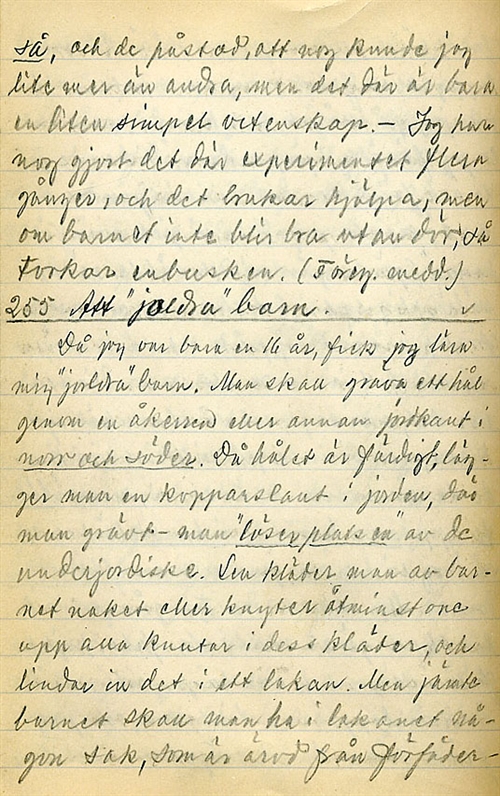 så, och de påstod, att nog kunde jag
lite mer än andra, men det där är bara
en liten simpel vetenskap. – Jag har
nog gjort det där experimentet flera
gånger, och det brukar hjälpa, men
om barnet inte blir bra utan dör, så
torkar enbusken. (Föreg. medd.)
255 Att "joldra" barn.
Då jag var bara en 16 år, fick jag lära
mig "jorldra" barn. Man skall gräva ett hål
genom en åkerren eller annan jordkant i
norr och söder. Då hålet är färdigt, läg-
ger man en kopparslant i jorden, där
man grävt – man "löser platsen" av de
underjordiske. Sen kläder man av bar-
net naket eller knyter åtminstone
upp alla knutar i dess kläder, och
lindar in det i ett lakan. Men jämte
barnet skall man ha i lakanet nå-
gon sak, som är ärvd från förfäder-